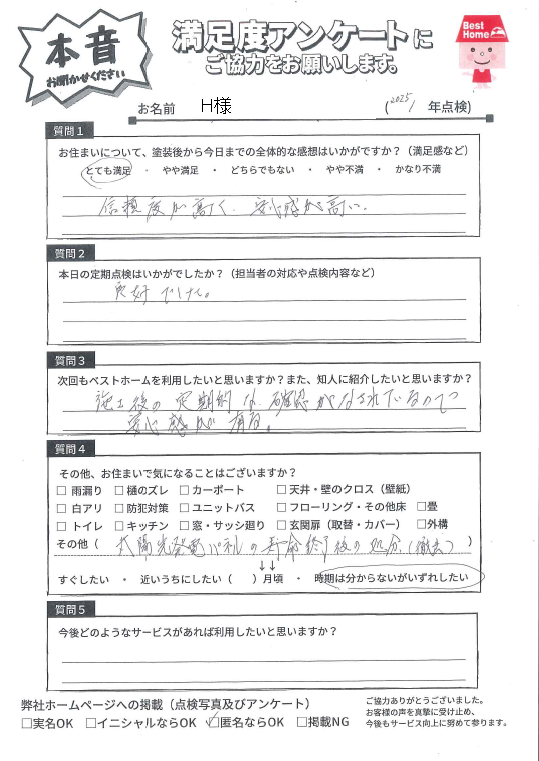 本音
お聞かせください
満足度アンケートに
ご協力をお願いします。
Best Home
お名前 H様 (2025/ 年点検)
質問1
お住まいについて、塗装後から今日までの全体的な感想はいかがですか？（満足感など）
とても満足 ・ やや満足 ・ どちらでもない ・ やや不満 ・ かなり不満
信頼度が高く、安心感が高い。
質問2
本日の定期点検はいかがでしたか？（担当者の対応や点検内容など）
良好でした。
質問3
次回もベストホームを利用したいと思いますか？また、知人に紹介したいと思いますか？
施工後の定期的な確認がなされているので
安心感が有る。
質問4
その他、お住まいで気になることはございますか？
□ 雨漏り □ 樋のズレ □ カーポート □ 天井・壁のクロス（壁紙）
□ 白アリ □ 防犯対策 □ ユニットバス □ フローリング・その他床 □畳
□ トイレ □ キッチン □ 窓・サッシ廻り □ 玄関扉（取替・カバー） □外構
その他（ 太陽光発電パネルの寿命終了後の処分（撤去） ）
↓↓
すぐしたい ・ 近いうちにしたい（ ）月頃 ・ 時期は分からないがいずれしたい
質問5
今後どのようなサービスがあれば利用したいと思いますか？
弊社ホームページへの掲載（点検写真及びアンケート）
□実名OK □イニシャルならOK ☑匿名ならOK □掲載NG
ご協力ありがとうございました。
お客様の声を真摯に受け止め、
今後もサービス向上に努めて参ります。